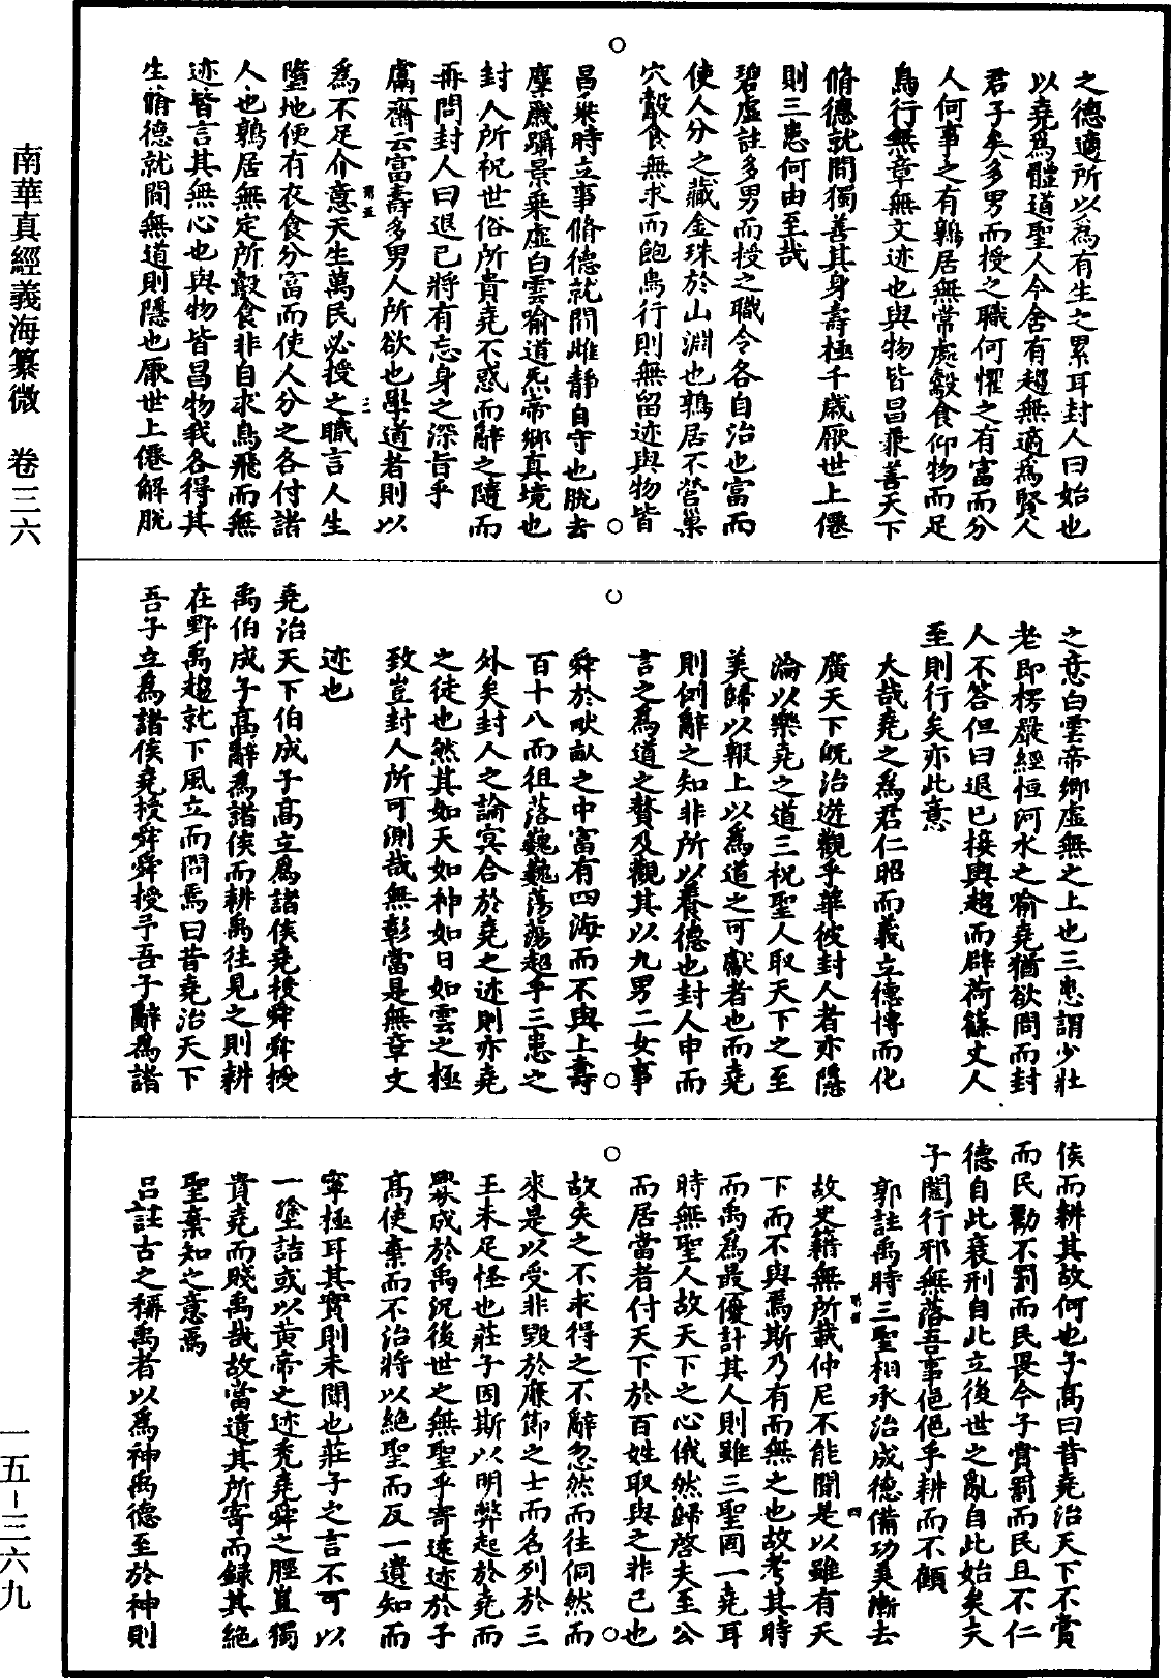 之德適所以為有生之累耳封人曰始也
以堯為體道聖人今舍有趨無適為賢人
君子矣多男而授之職何懼之有富而分
人何事之有鶉居無常處鷇食仰物而足
鳥行無章無文迹也與物皆昌兼善天下
脩德就閒獨善其身壽極千歲厭世上僊
則三患何由至哉
碧虛註多男而授之職令各自治也富而
使人分之藏金珠於山淵也鶉居不營巢
穴鷇食無求而飽鳥行則無留迹與物皆
昌乘時立事脩德就閒雌靜自守也脫去
塵厰躡景乘虛白雲喻道炁帝鄉真境也
封人所祝世俗所貴堯不惑而辭之隨而
再問封人曰退已將有忘身之深旨乎
鬳齋云富壽多男人所欲也學道者則以
為不足介意天生萬民必授之職言人生
墮地便有衣食分富而使人分之各付諸
人也鶉居無定所鷇食非自求鳥飛而無
迹皆言其無心也與物皆昌物我各得其
生脩德就閒無道則隱也厭世上僊解脫
之意白雲帝鄉虛無之上也三患謂少壯
老即楞嚴經恒河水之喻堯猶欲問而封
人不答但曰退已接輿趨而辟荷篠丈人
至則行矣亦此意
大哉堯之為君仁昭而義立德博而化
廣天下既治遊觀乎華彼封人者亦隱
淪以樂堯之道三祝聖人取天下之至
美歸以報上以為道之可獻者也而堯
則例辭之知非所以養德也封人申而
言之為道之贅及觀其以九男二女事
舜於畎畝之中富有四海而不與上壽
百十八而徂落巍巍蕩蕩超乎三患之
外矣封人之論冥合於堯之迹則亦堯
之徒也然其如天如神如日如雲之極
致豈封人所可測哉無彰當是無章文
迹也
堯治天下伯成子高立為諸侯堯授舜舜授
禹伯成子高辭為諸侯而耕禹往見之則耕
在野禹趨就下風立而問焉曰昔堯治天下
吾子立為諸侯堯授舜舜授予吾子辭為諸
侯而耕其故何也子高曰昔堯治天下不賞
而民勸不罰而民畏今子賞罰而民且不仁
德自此衰刑自此立後世之亂自此始矣夫
子闔行邪無落吾事俋俋乎耕而不顧
郭註禹時三聖相承治成德備功美漸去
故史籍無所載仲尼不能間是以雖有天
下而不與焉斯乃有而無之也故考其時
而禹為最優計其人則雖三聖固一堯耳
時無聖人故天下之心俄然歸啓夫至公
而居當者付天下於百姓取與之非已也
故失之不求得之不辭忽然而往侗然而
來是以受非毀於廉節之士而名列於三
王未足怪也莊子因斯以明弊起於堯而
釁成於禹況後世之無聖乎寄遠迹於子
高使棄而不治將以絕聖而反一遺知而
寧極耳其實則未聞也莊子之言不可以
一塗詰或以黃帝之迹禿堯舜之脛豈獨
貴堯而賤禹哉故當遺其所寄而錄其絕
聖棄知之意焉
呂註古之稱禹者以為神禹德至於神則
南華真經義海纂微　卷三六
一五-三六九